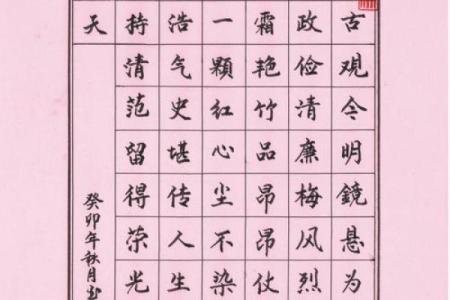 古观今明鏡悬为
政俭清廉梅风烈
霜艳竹品昂昂仗
一顆红心尘不染
浩气史堪传人生
持清范留得荣光
天
癸卯年秋月书